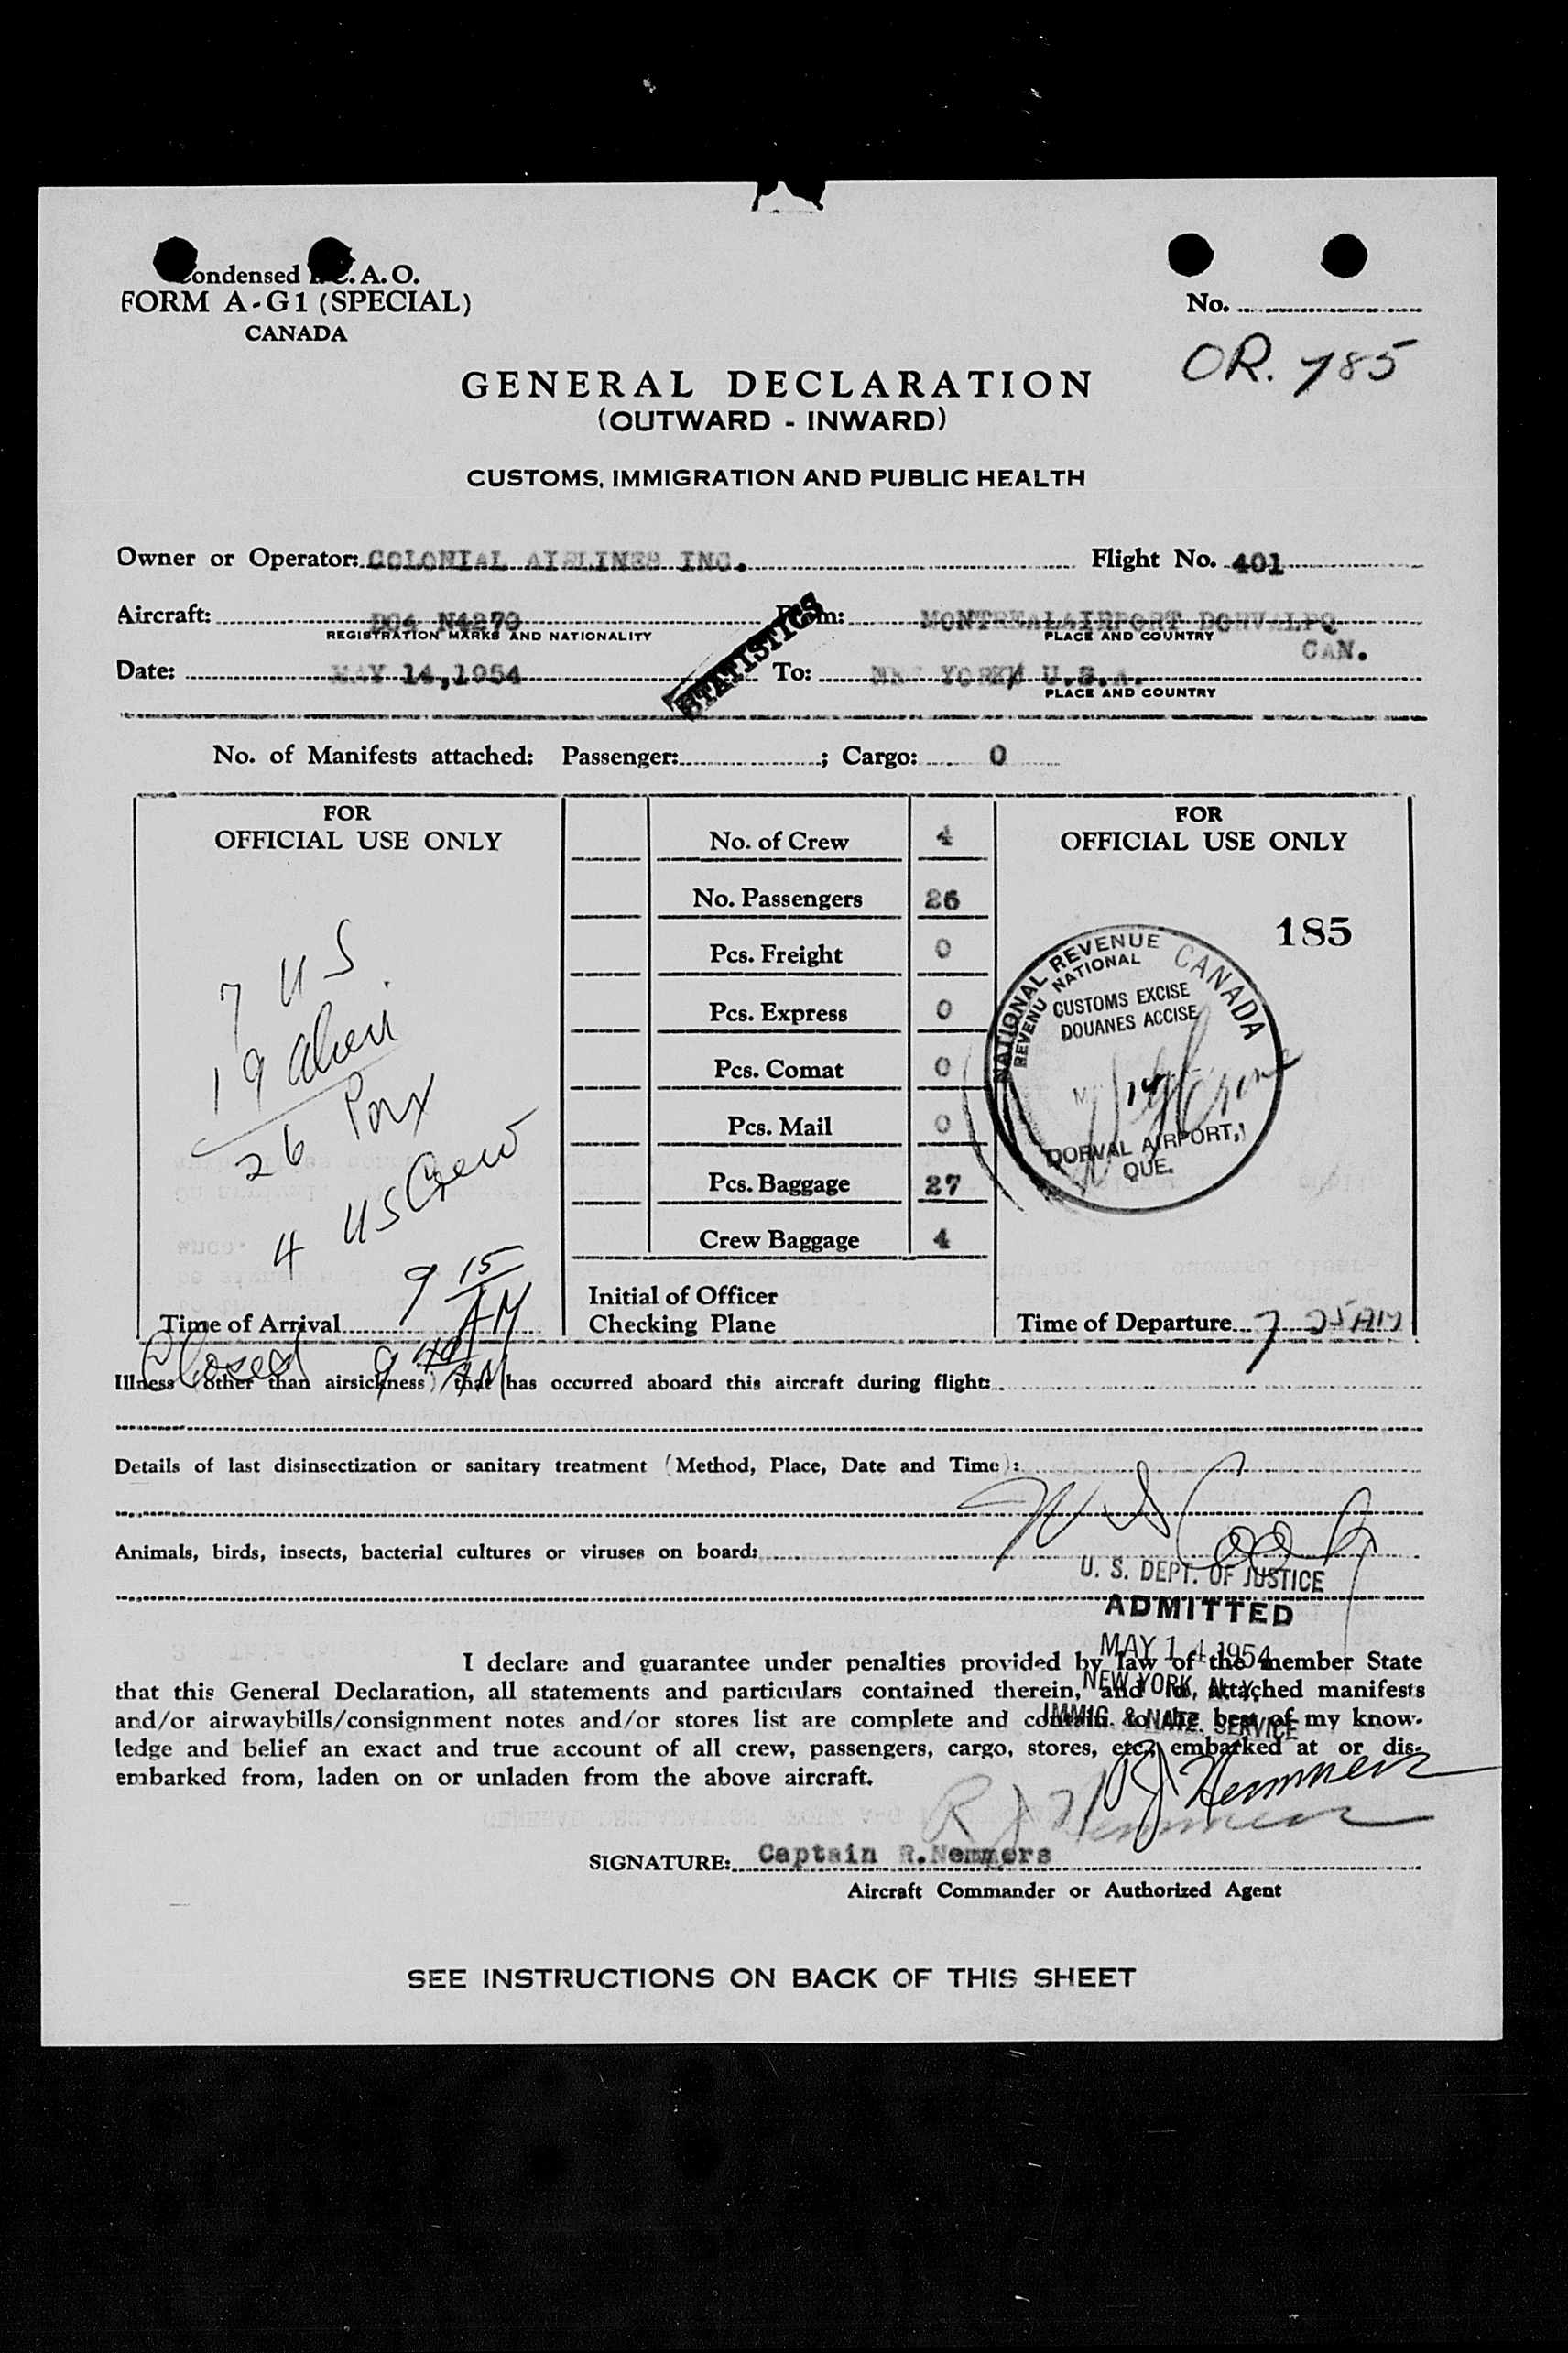 Condensed I.C.A.O.
FORM A-G1 (SPECIAL)
CANADA
No.
OR. 785
GENERAL DECLARATION
(OUTWARD - INWARD)
CUSTOMS, IMMIGRATION AND PUBLIC HEALTH
Owner or Operator: COLONIAL AIRLINES INC. Flight No. 401
Aircraft: DC4 N4270 From: MONTREALAIRPORT DORVALPQ
REGISTRATION MARKS AND NATIONALITY PLACE AND COUNTRY
CAN.
STATISTICS
Date: MAY 14,1954 To: NEW YORK U.S.A.
PLACE AND COUNTRY
No. of Manifests attached: Passenger: ; Cargo: 0
FOR
OFFICIAL USE ONLY
7 US
19 alien
26 Pax
4 US Crew
9 15 AM
Time of Arrival
Closed 9 40 AM
No. of Crew 4
No. Passengers 26
Pcs. Freight 0
Pcs. Express 0
Pcs. Comat 0
Pcs. Mail 0
Pcs. Baggage 27
Crew Baggage 4
Initial of Officer
Checking Plane
FOR
OFFICIAL USE ONLY
185
NATIONAL REVENUE CANADA
REVENU NATIONAL
CUSTOMS EXCISE
DOUANES ACCISE
14
DORVAL AIRPORT,
QUE.
Time of Departure 7 25 AM
Illness (other than airsickness) that has occurred aboard this aircraft during flight:
Details of last disinsectization or sanitary treatment (Method, Place, Date and Time):
Animals, birds, insects, bacterial cultures or viruses on board:
U. S. DEPT. OF JUSTICE
ADMITTED
MAY 14 1954
NEW YORK, N. Y.
IMMIG. & NATZ. SERVICE
I declare and guarantee under penalties provided by law of the member State
that this General Declaration, all statements and particulars contained therein, and in, attached manifests
and/or airwaybills/consignment notes and/or stores list are complete and contain to the best of my know-
ledge and belief an exact and true account of all crew, passengers, cargo, stores, etc., embarked at or dis-
embarked from, laden on or unladen from the above aircraft.
R J Nemmers
R J Nemmers
SIGNATURE: Captain R.Nemmers
Aircraft Commander or Authorized Agent
SEE INSTRUCTIONS ON BACK OF THIS SHEET